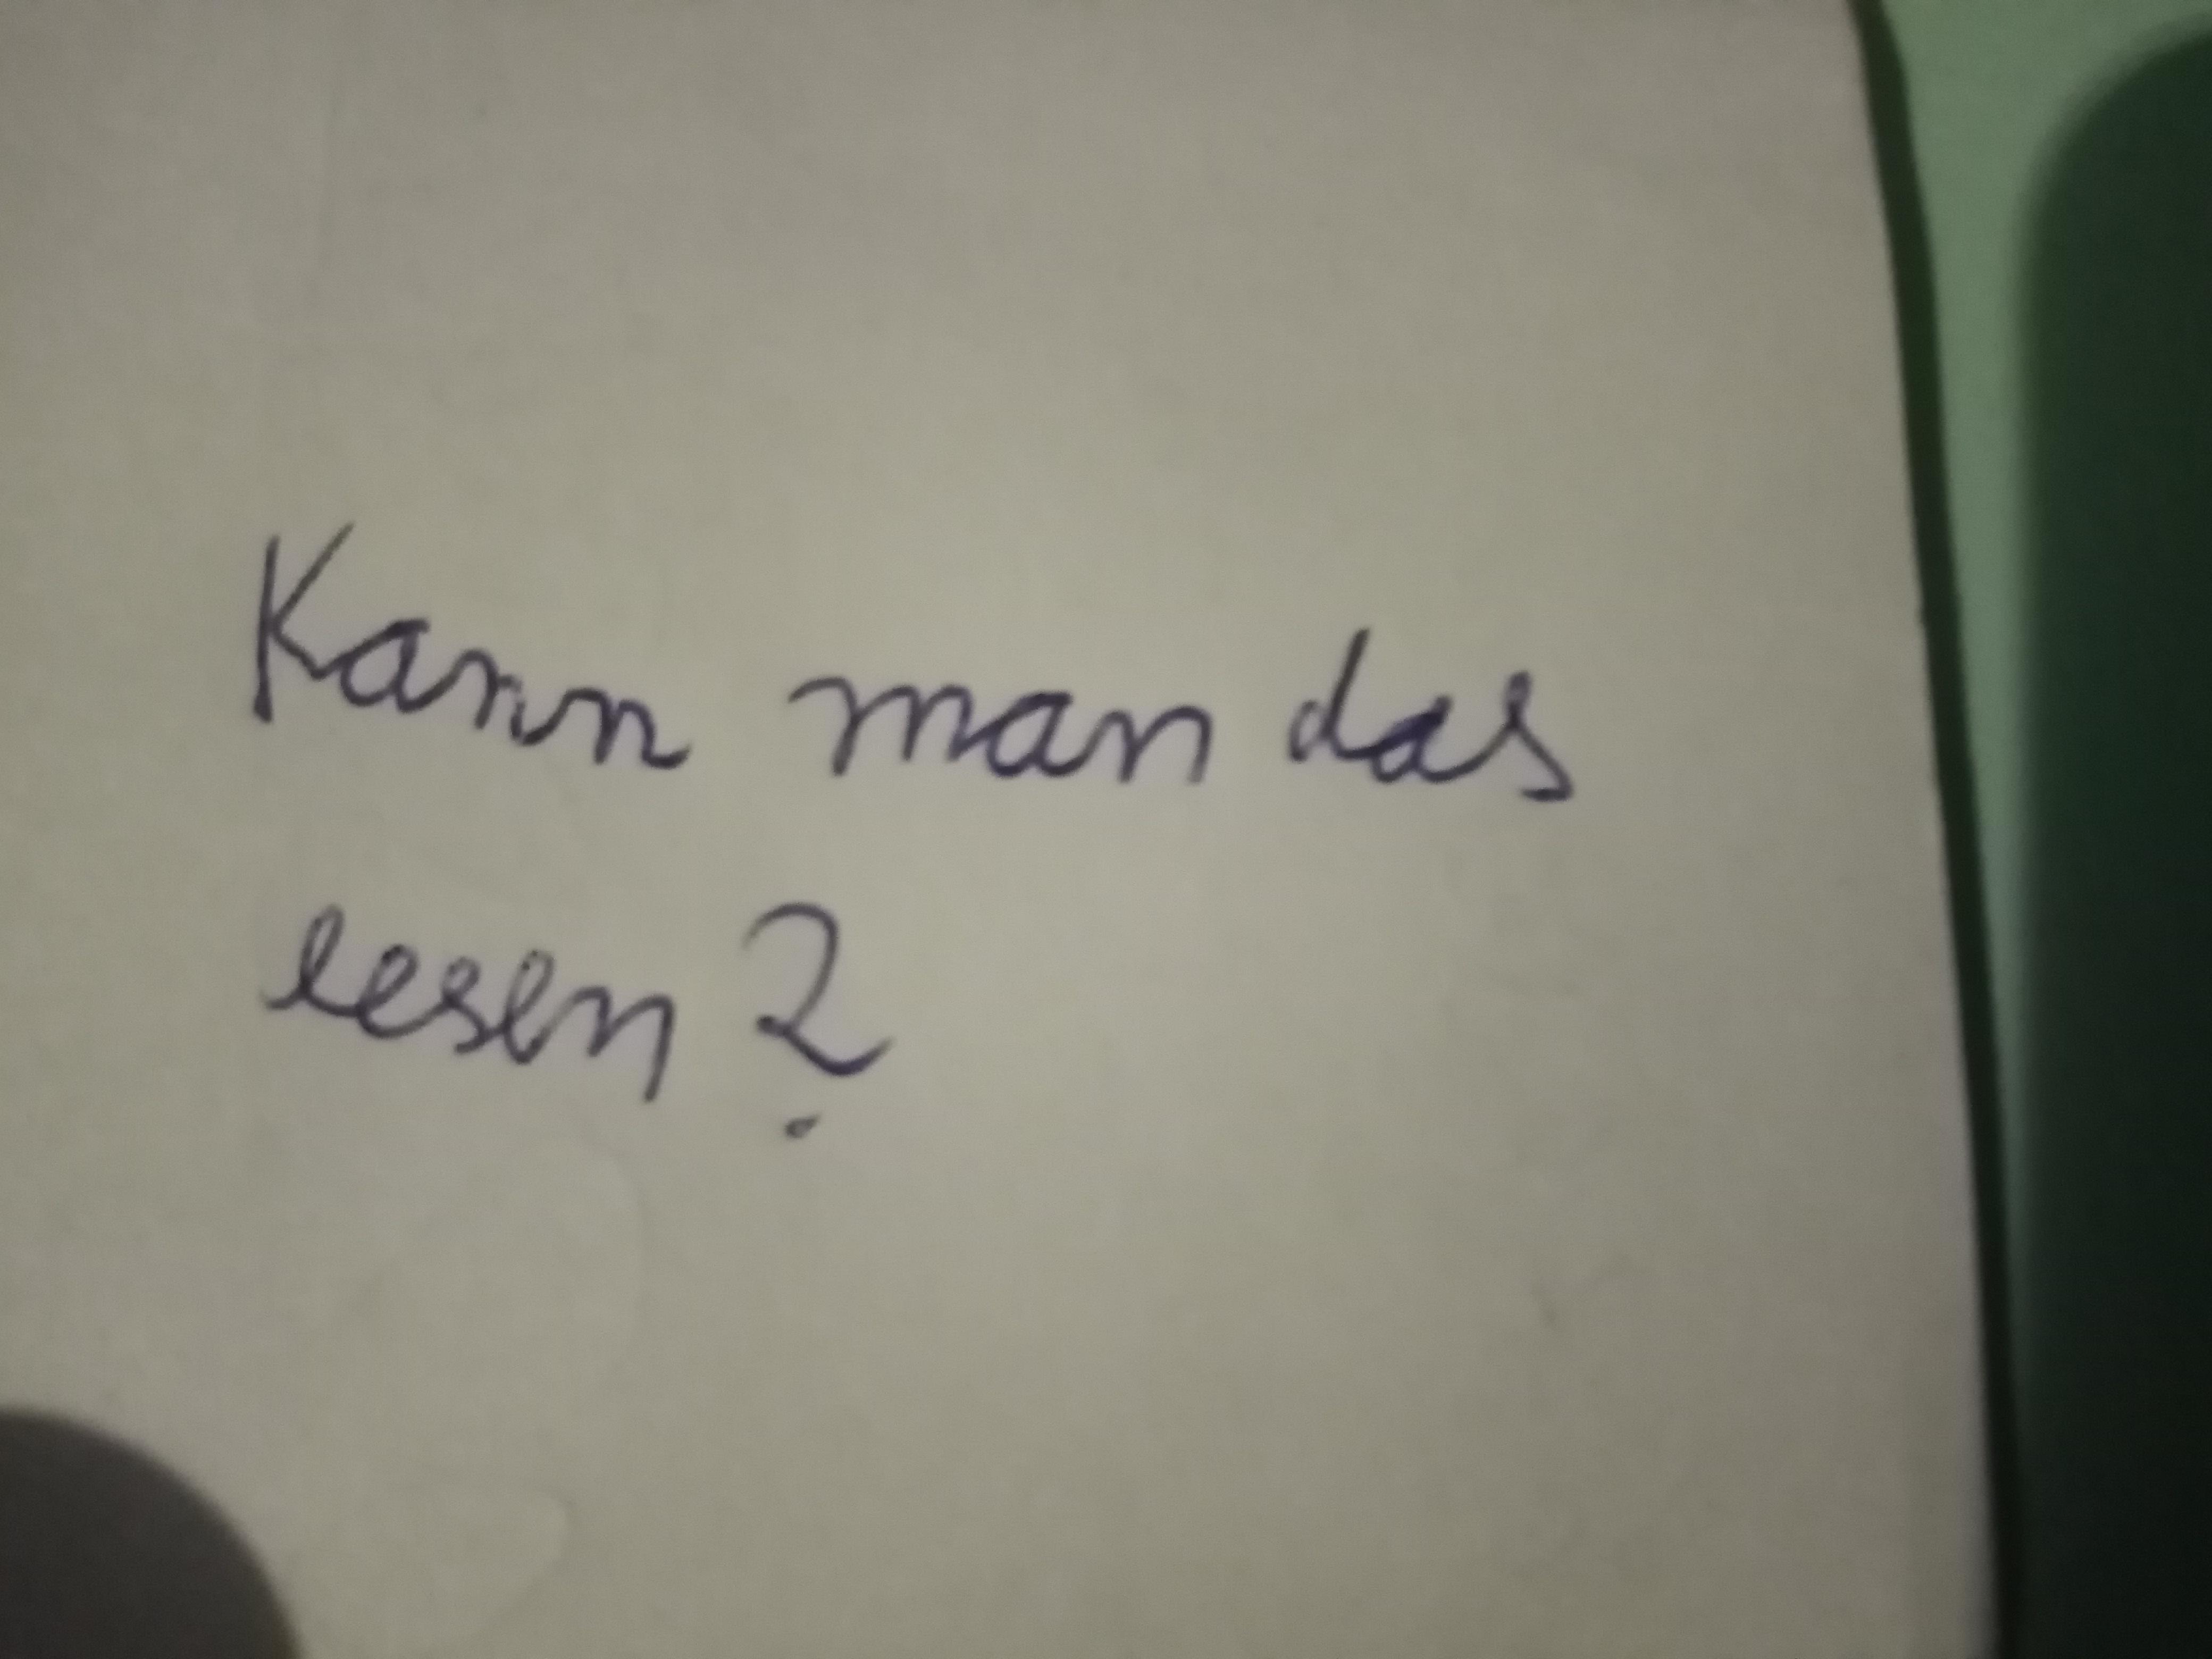 Kann man das
lesen?